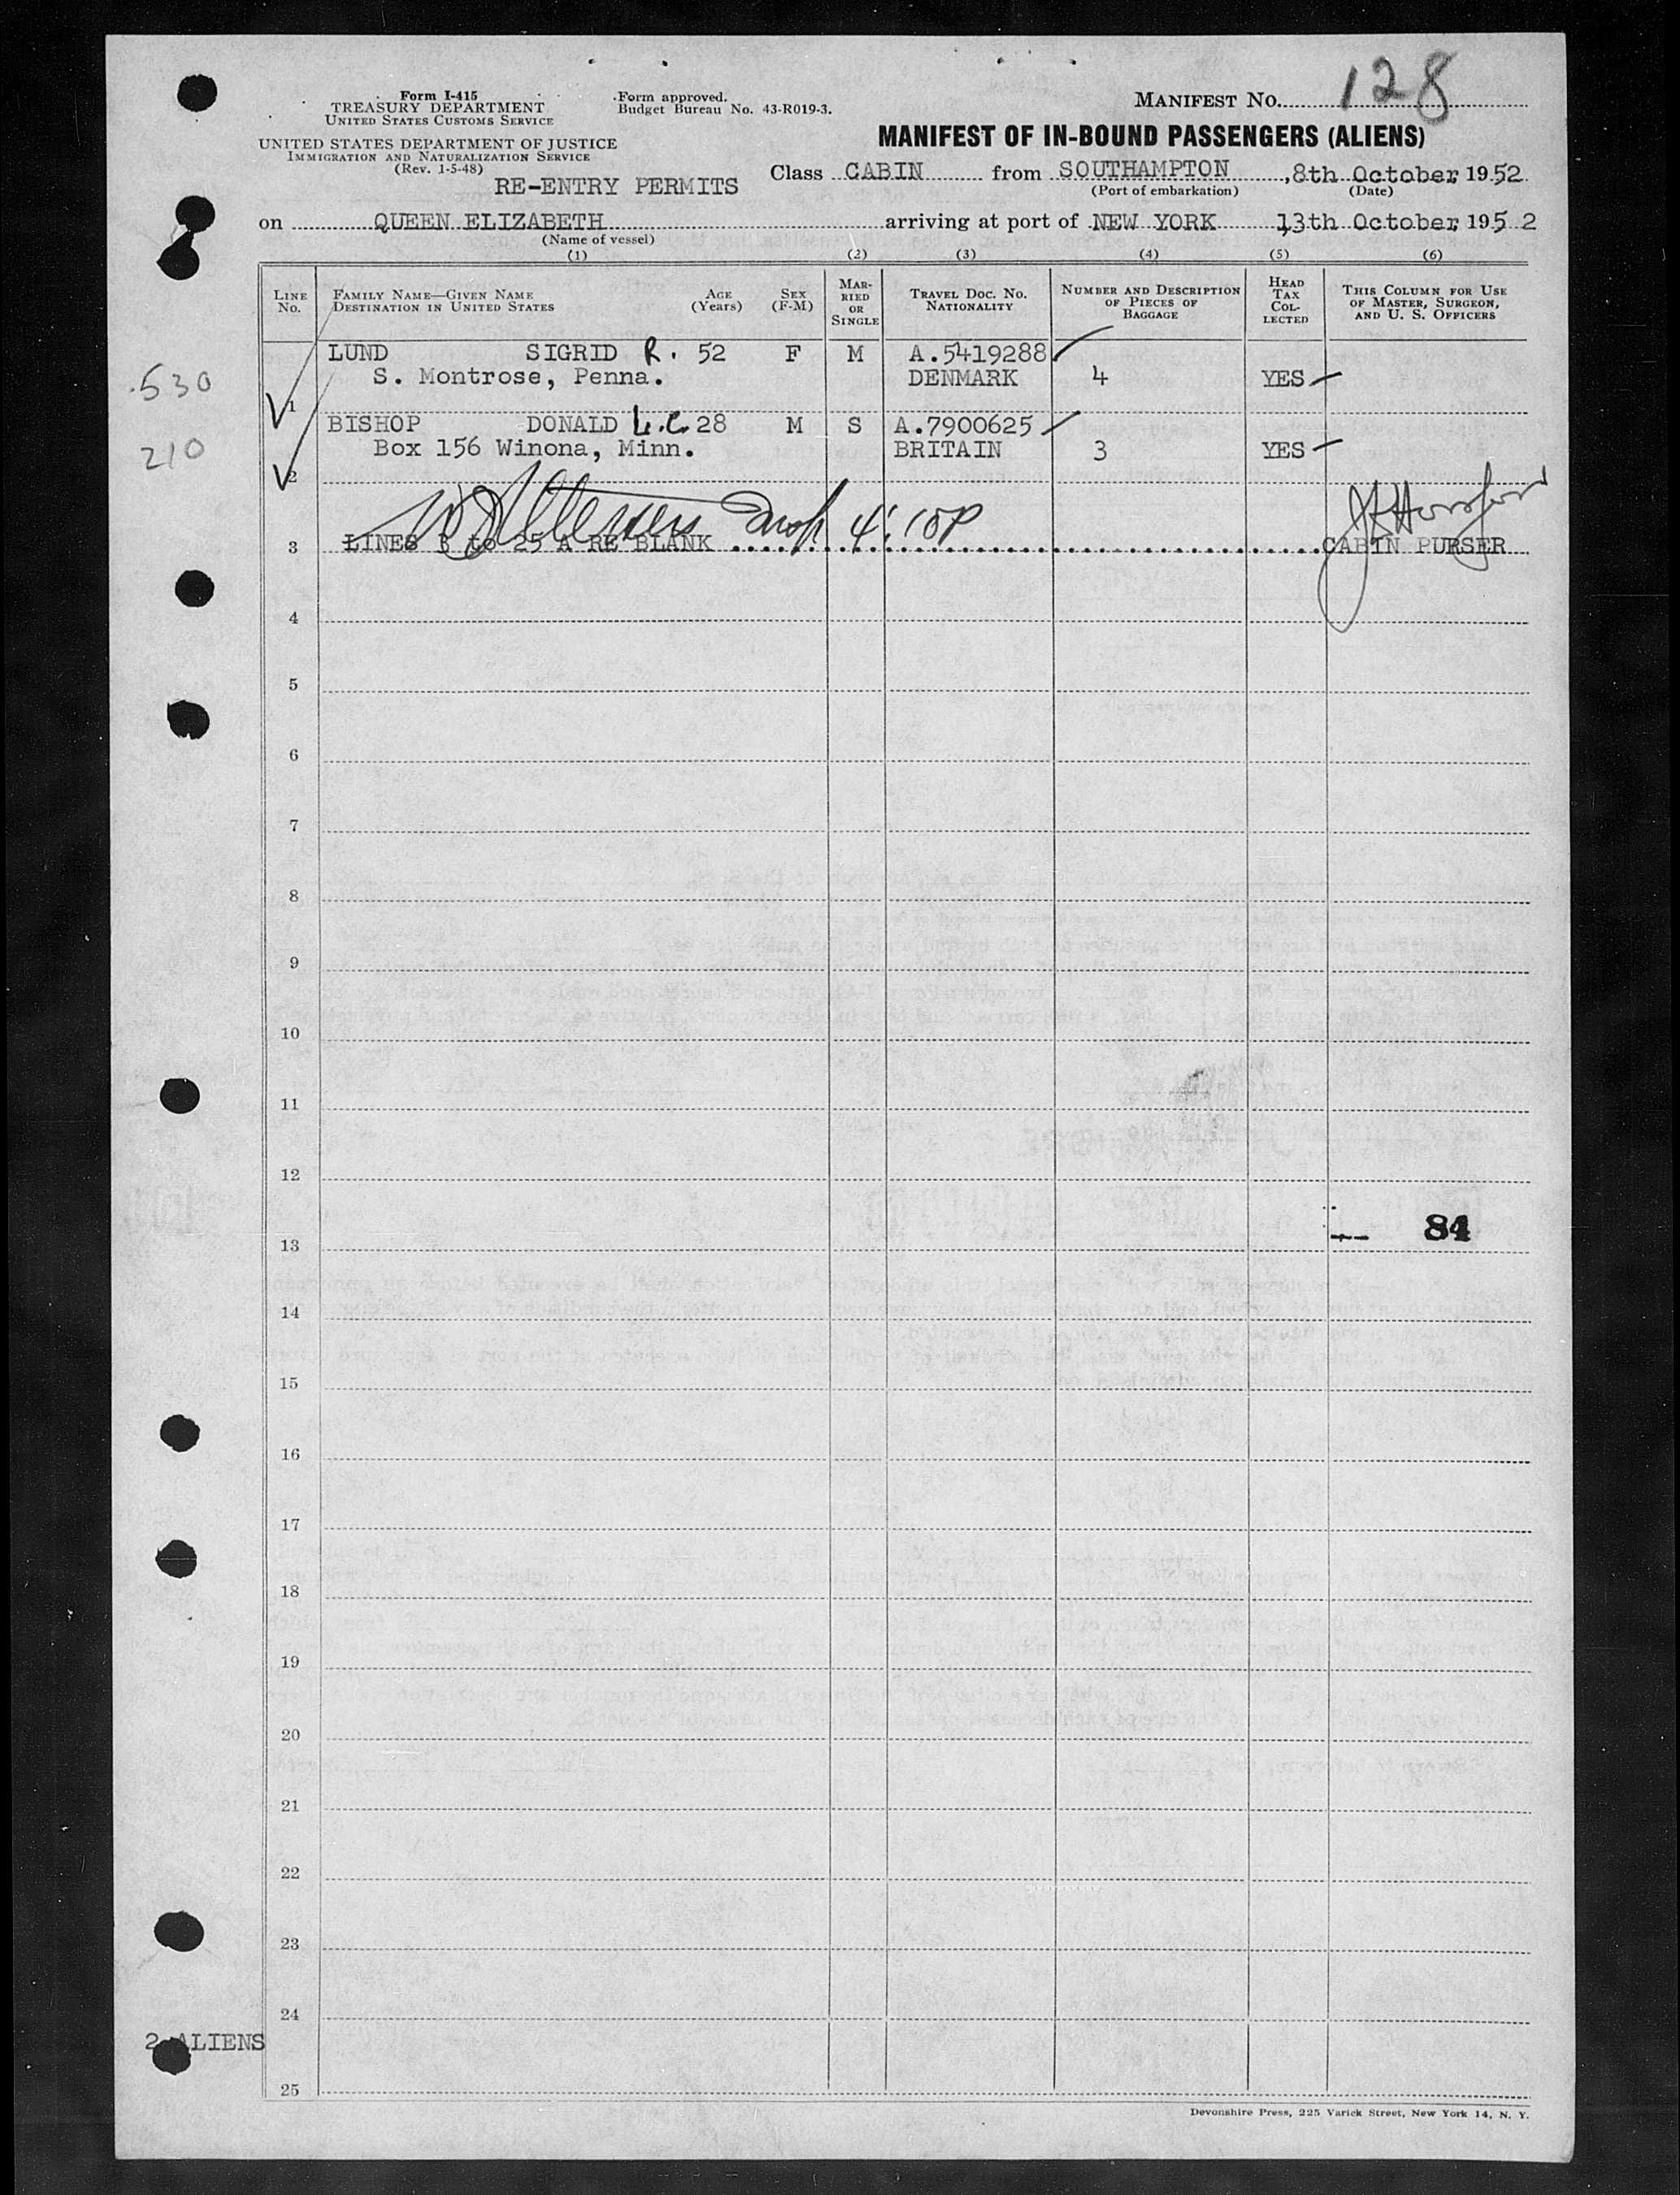 128
Form I-415
TREASURY DEPARTMENT
UNITED STATES CUSTOMS SERVICE
Form approved.
Budget Bureau No. 43-R019-3.
MANIFEST NO.
UNITED STATES DEPARTMENT OF JUSTICE
IMMIGRATION AND NATURALIZATION SERVICE
(Rev. 1-5-48)
MANIFEST OF IN-BOUND PASSENGERS (ALIENS)
RE-ENTRY PERMITS
Class CABIN from SOUTHAMPTON, 8th October, 1952
(Port of embarkation) (Date)
on QUEEN ELIZABETH arriving at port of NEW YORK 13th October, 1952
(Name of vessel)
(1) (2) (3) (4) (5) (6)
LINE No. FAMILY NAME—GIVEN NAME DESTINATION IN UNITED STATES AGE (Years) SEX (F-M) MARRIED OR SINGLE TRAVEL DOC. NO. NATIONALITY NUMBER AND DESCRIPTION OF PIECES OF BAGGAGE HEAD TAX COLLECTED THIS COLUMN FOR USE OF MASTER, SURGEON, AND U. S. OFFICERS
LUND SIGRID R. 52 F M A.5419288
530 S. Montrose, Penna. DENMARK 4 YES
1
BISHOP DONALD L.C. 28 M S A.7900625
210 Box 156 Winona, Minn. BRITAIN 3 YES
2
4:10P
3 LINES 3 to 25 A RE BLANK CABIN PURSER
4
5
6
7
8
9
10
11
12
84
13
14
15
16
17
18
19
20
21
22
23
24
2 ALIENS
25
Devonshire Press, 225 Varick Street, New York 14, N. Y.